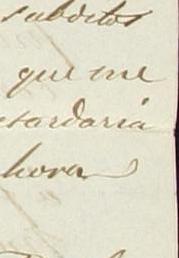 subditos
que me
esardaria
hora